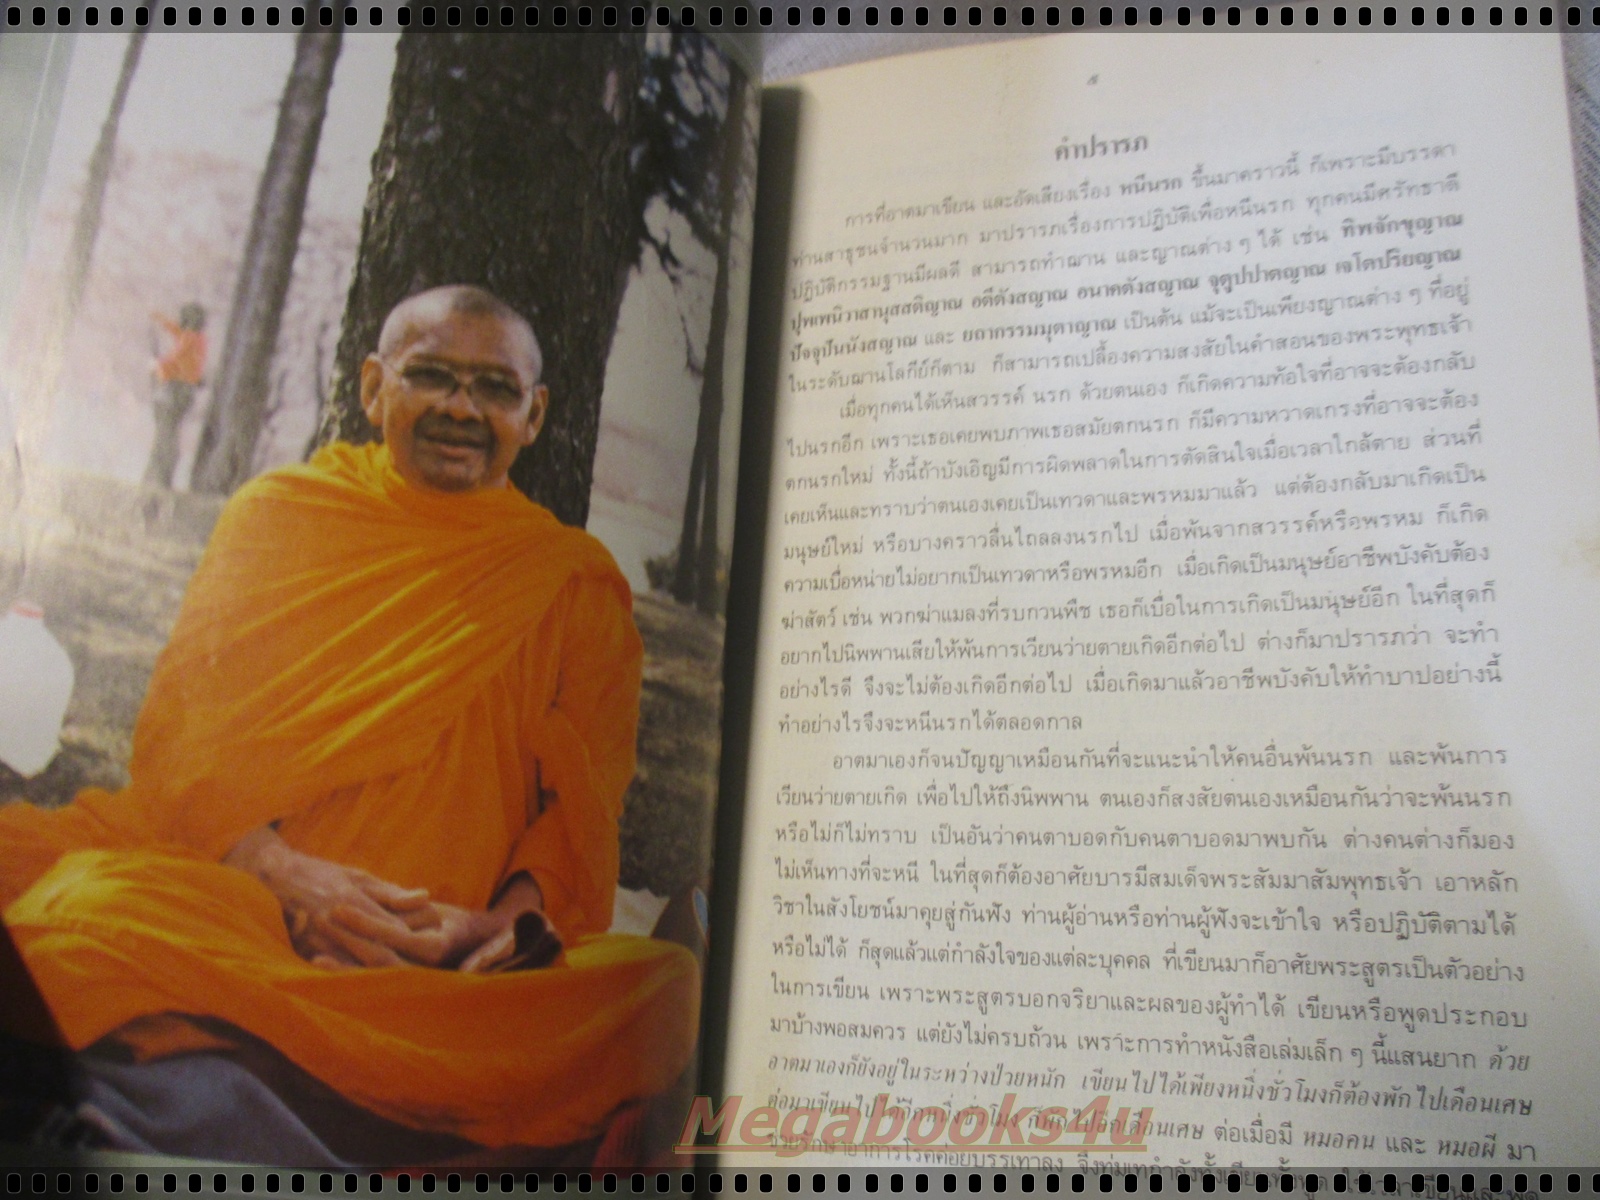 ๕
คำปรารภ
การที่อาตมาเขียน และอัดเสียงเรื่อง หนีนรก ขึ้นมาคราวนี้ ก็เพราะมีบรรดา
ท่านสาธุชนจำนวนมาก มาปรารภเรื่องการปฏิบัติเพื่อหนีนรก ทุกคนมีศรัทธาดี
ปฏิบัติกรรมฐานมีผลดี สามารถทำฌาน และญาณต่าง ๆ ได้ เช่น ทิพจักขุญาณ
ปุพเพนิวาสานุสสติญาณ อตีตังสญาณ อนาคตังสญาณ จุตูปปาตญาณ เจโตปริยญาณ
ปัจจุปันนังสญาณ และ ยถากรรมมุตาญาณ เป็นต้น แม้จะเป็นเพียงญาณต่าง ๆ ที่อยู่
ในระดับฌานโลกีย์ก็ตาม ก็สามารถเปลื้องความสงสัยในคำสอนของพระพุทธเจ้า
เมื่อทุกคนได้เห็นสวรรค์ นรก ด้วยตนเอง ก็เกิดความท้อใจที่อาจจะต้องกลับ
ไปนรกอีก เพราะเธอเคยพบภาพเธอสมัยตกนรก ก็มีความหวาดเกรงที่อาจจะต้อง
ตกนรกใหม่ ทั้งนี้ถ้าบังเอิญมีการผิดพลาดในการตัดสินใจเมื่อเวลาใกล้ตาย ส่วนที่
เคยเห็นและทราบว่าตนเองเคยเป็นเทวดาและพรหมมาแล้ว แต่ต้องกลับมาเกิดเป็น
มนุษย์ใหม่ หรือบางคราวลื่นไถลลงนรกไป เมื่อพ้นจากสวรรค์หรือพรหม ก็เกิด
ความเบื่อหน่ายไม่อยากเป็นเทวดาหรือพรหมอีก เมื่อเกิดเป็นมนุษย์อาชีพบังคับต้อง
ฆ่าสัตว์ เช่น พวกฆ่าแมลงที่รบกวนพืช เธอก็เบื่อในการเกิดเป็นมนุษย์อีก ในที่สุดก็
อยากไปนิพพานเสียให้พ้นการเวียนว่ายตายเกิดอีกต่อไป ต่างก็มาปรารภว่า จะทำ
อย่างไรดี จึงจะไม่ต้องเกิดอีกต่อไป เมื่อเกิดมาแล้วอาชีพบังคับให้ทำบาปอย่างนี้
ทำอย่างไรจึงจะหนีนรกได้ตลอดกาล
อาตมาเองก็จนปัญญาเหมือนกันที่จะแนะนำให้คนอื่นพ้นนรก และพ้นการ
เวียนว่ายตายเกิด เพื่อไปให้ถึงนิพพาน ตนเองก็สงสัยตนเองเหมือนกันว่าจะพ้นนรก
หรือไม่ก็ไม่ทราบ เป็นอันว่าคนตาบอดกับคนตาบอดมาพบกัน ต่างคนต่างก็มอง
ไม่เห็นทางที่จะหนี ในที่สุดก็ต้องอาศัยบารมีสมเด็จพระสัมมาสัมพุทธเจ้า เอาหลัก
วิชาในสังโยชน์มาคุยสู่กันฟัง ท่านผู้อ่านหรือท่านผู้ฟังจะเข้าใจ หรือปฏิบัติตามได้
หรือไม่ได้ ก็สุดแล้วแต่กำลังใจของแต่ละบุคคล ที่เขียนมาก็อาศัยพระสูตรเป็นตัวอย่าง
ในการเขียน เพราะพระสูตรบอกจริยาและผลของผู้ทำได้ เขียนหรือพูดประกอบ
มาบ้างพอสมควร แต่ยังไม่ครบถ้วน เพราะการทำหนังสือเล่มเล็ก ๆ นี้แสนยาก ด้วย
อาตมาเองก็ยังอยู่ในระหว่างป่วยหนัก เขียนไปได้เพียงหนึ่งชั่วโมงก็ต้องพักไปเดือนเศษ
ต่อมาเขียนไปได้อีกหนึ่งชั่วโมง ก็พักไปอีกเดือนเศษ ต่อเมื่อมี หมอคน และ หมอผี มา
ช่วยรักษาอาการโรคค่อยบรรเทาลง จึงทุ่มเทกำลังทั้งเขียนทั้งพูด
Megabooks4u